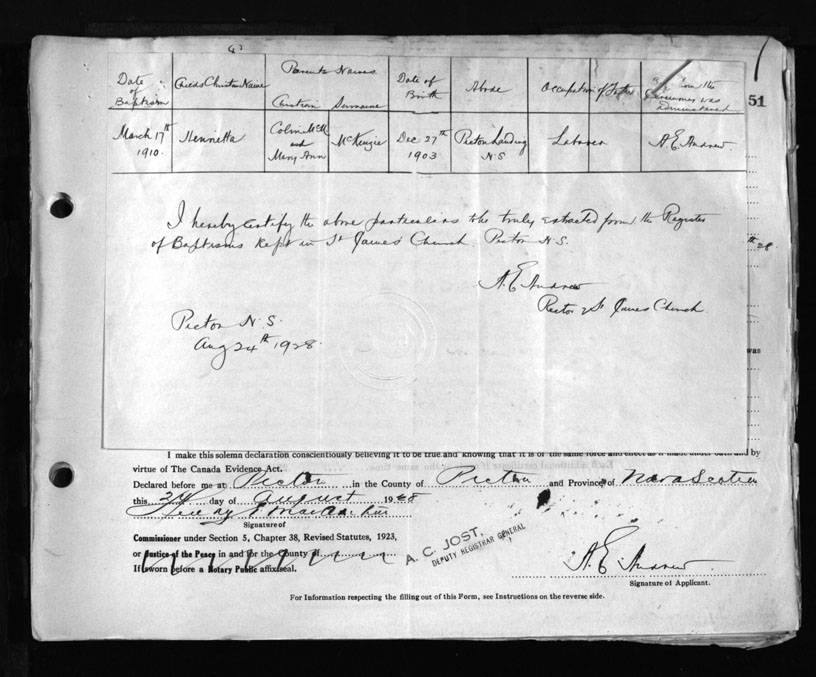 Date of Baptism
Child's Christian Name
Parents Names
Christian
Surname
Date of Birth
Abode
Occupation of Father
whom the
Ceremony was
administered
51
March 17th
1910.
Henrietta
Colin
and
Mary Ann
McKenzie
Dec 27th
1903
Pictou Landing
N.S
Laborer
A.E. Andrew
I hereby certify the above particulars to be truly extracted from the Register
of Baptisms kept in St James' Church. Pictou N.S.
A.E Andrew
Rector St James Church
Pictou N.S.
Aug 24th 1928.
was
I make this solemn declaration conscientiously believing it to be true and knowing that it is of the same force and effect as if made under oath and by
virtue of The Canada Evidence Act.
Declared before me at Pictou in the County of Pictou and Province of Nova Scotia
this 24 day of August 19
Signature of
Commissioner under Section 5, Chapter 38, Revised Statutes, 1923,
or Justice of the Peace in and for the County of
If sworn before a Notary Public affix seal.
A. C. JOST,
DEPUTY REGISTRAR GENERAL
A.E. Andrew
Signature of Applicant.
For Information respecting the filling out of this Form, see Instructions on the reverse side.